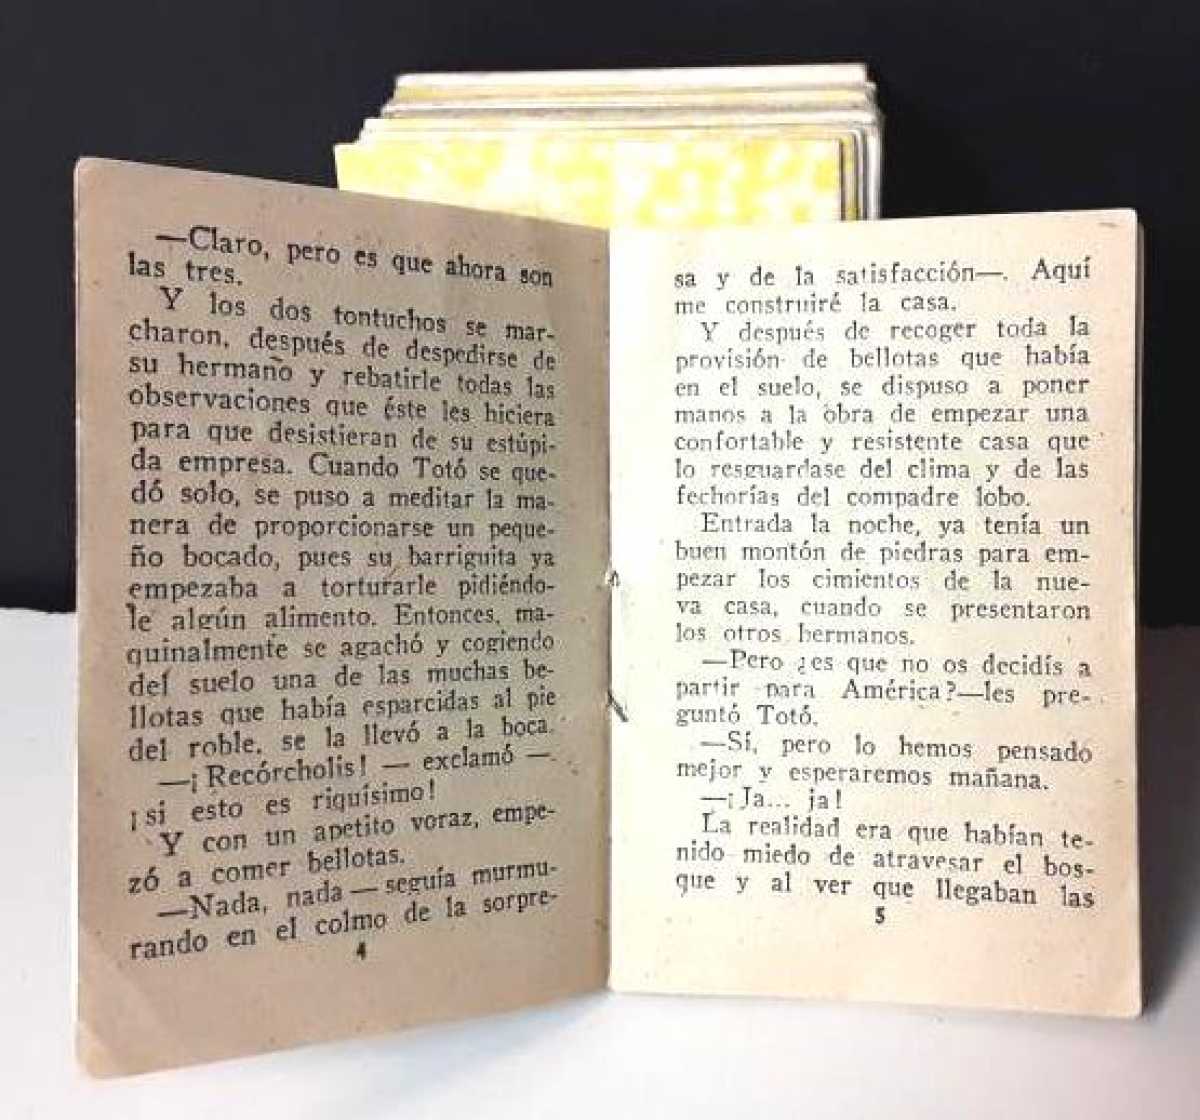 —Claro, pero es que ahora son
las tres.
Y los dos tontuchos se mar-
charon, después de despedirse de
su hermano y rebatirle todas las
observaciones que éste les hiciera
para que desistieran de su estúpi-
da empresa. Cuando Totó se que-
dó solo, se puso a meditar la ma-
nera de proporcionarse un peque-
ño bocado, pues su barriguita ya
empezaba a torturarle pidiéndo-
le algún alimento. Entonces, ma-
quinalmente se agachó y cogiendo
del suelo una de las muchas be-
llotas que había esparcidas al pie
del roble, se la llevó a la boca.
—¡Recórcholis! — exclamó —.
¡si esto es riquísimo!
Y con un apetito voraz, empe-
zó a comer bellotas.
—Nada, nada — seguía murmu-
rando en el colmo de la sorpre-
4
sa y de la satisfacción—. Aquí
me construiré la casa.
Y después de recoger toda la
provisión de bellotas que había
en el suelo, se dispuso a poner
manos a la obra de empezar una
confortable y resistente casa que
lo resguardase del clima y de las
fechorías del compadre lobo.
Entrada la noche, ya tenía un
buen montón de piedras para em-
pezar los cimientos de la nue-
va casa, cuando se presentaron
los otros hermanos.
—Pero ¿es que no os decidís a
partir para América?—les pre-
guntó Totó.
—Sí, pero lo hemos pensado
mejor y esperaremos mañana.
—¡Ja... ja!
La realidad era que habían te-
nido miedo de atravesar el bos-
que y al ver que llegaban las
5